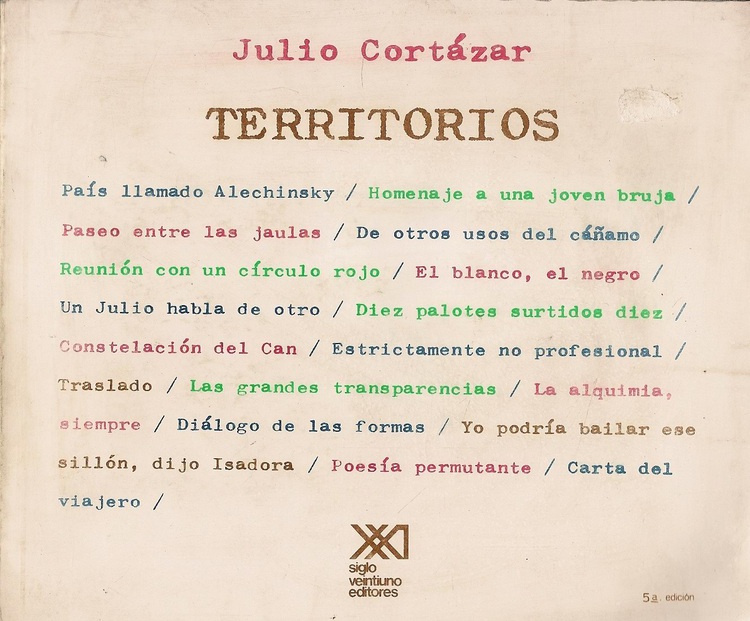 Julio Cortázar
TERRITORIOS
País llamado Alechinsky / Homenaje a una joven bruja /
Paseo entre las jaulas / De otros usos del cáñamo /
Reunión con un círculo rojo / El blanco, el negro /
Un Julio habla de otro / Diez palotes surtidos diez /
Constelación del Can / Estrictamente no profesional /
Traslado / Las grandes transparencias / La alquimia,
siempre / Diálogo de las formas / Yo podría bailar ese
sillón, dijo Isadora / Poesía permutante / Carta del
viajero /
XXI
siglo
veintiuno
editores
5a. edición